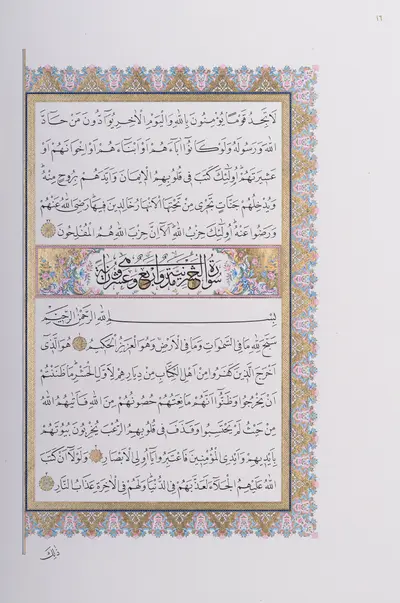 ١٦
لَا تَجِدُ قَوْمًا يُؤْمِنُونَ بِاللّٰهِ وَالْيَوْمِ الْاٰخِرِ يُوَآدُّونَ مَنْ حَآدَّ
اللّٰهَ وَرَسُولَهُ وَلَوْ كَانُٓوا اٰبَٓاءَهُمْ اَوْ اَبْنَٓاءَهُمْ اَوْ اِخْوَانَهُمْ اَوْ
عَشِيرَتَهُمْ اُو۬لٰٓئِكَ كَتَبَ فِى قُلُوبِهِمُ الْاِيمَانَ وَاَيَّدَهُمْ بِرُوحٍ مِنْهُ
وَيُدْخِلُهُمْ جَنَّاتٍ تَجْرِى مِنْ تَحْتِهَا الْاَنْهَارُ خَالِدِينَ فِيهَا رَضِىَ اللّٰهُ عَنْهُمْ
وَرَضُوا عَنْهُ اُو۬لٰٓئِكَ حِزْبُ اللّٰهِ اَلَٓا اِنَّ حِزْبَ اللّٰهِ هُمُ الْمُفْلِحُونَ
سورة الحشر مدنية وهي اربع وعشرون اية
بِسْمِ اللّٰهِ الرَّحْمٰنِ الرَّحِيمِ
سَبَّحَ لِلّٰهِ مَا فِى السَّمٰوَاتِ وَمَا فِى الْاَرْضِ وَهُوَ الْعَزِيزُ الْحَكِيمُ هُوَ الَّذِٓى
اَخْرَجَ الَّذِينَ كَفَرُوا مِنْ اَهْلِ الْكِتَابِ مِنْ دِيَارِهِمْ لِاَوَّلِ الْحَشْرِ مَا ظَنَنْتُمْ
اَنْ يَخْرُجُوا وَظَنُّٓوا اَنَّهُمْ مَانِعَتُهُمْ حُصُونُهُمْ مِنَ اللّٰهِ فَاَتٰيهُمُ اللّٰهُ
مِنْ حَيْثُ لَمْ يَحْتَسِبُوا وَقَذَفَ فِى قُلُوبِهِمُ الرُّعْبَ يُخْرِبُونَ بُيُوتَهُمْ
بِاَيْدِيهِمْ وَاَيْدِى الْمُؤْمِنِينَ فَاعْتَبِرُوا يَٓا اُو۬لِى الْاَبْصَارِ وَلَوْلَٓا اَنْ كَتَبَ
اللّٰهُ عَلَيْهِمُ الْجَلَٓاءَ لَعَذَّبَهُمْ فِى الدُّنْيَا وَلَهُمْ فِى الْاٰخِرَةِ عَذَابُ النَّارِ
ذٰلِكَ